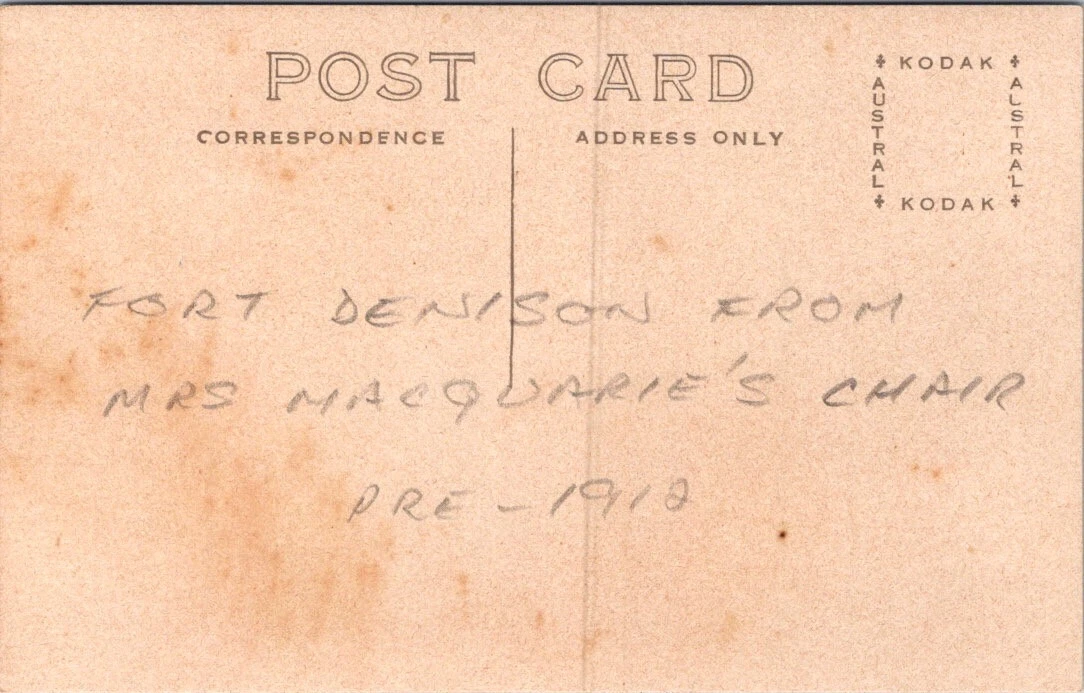 POST CARD
CORRESPONDENCE
ADDRESS ONLY
KODAK
AUSTRAL
AUSTRAL
KODAK
FORT DENISON FROM
MRS MACQUARIE'S CHAIR
PRE - 1912